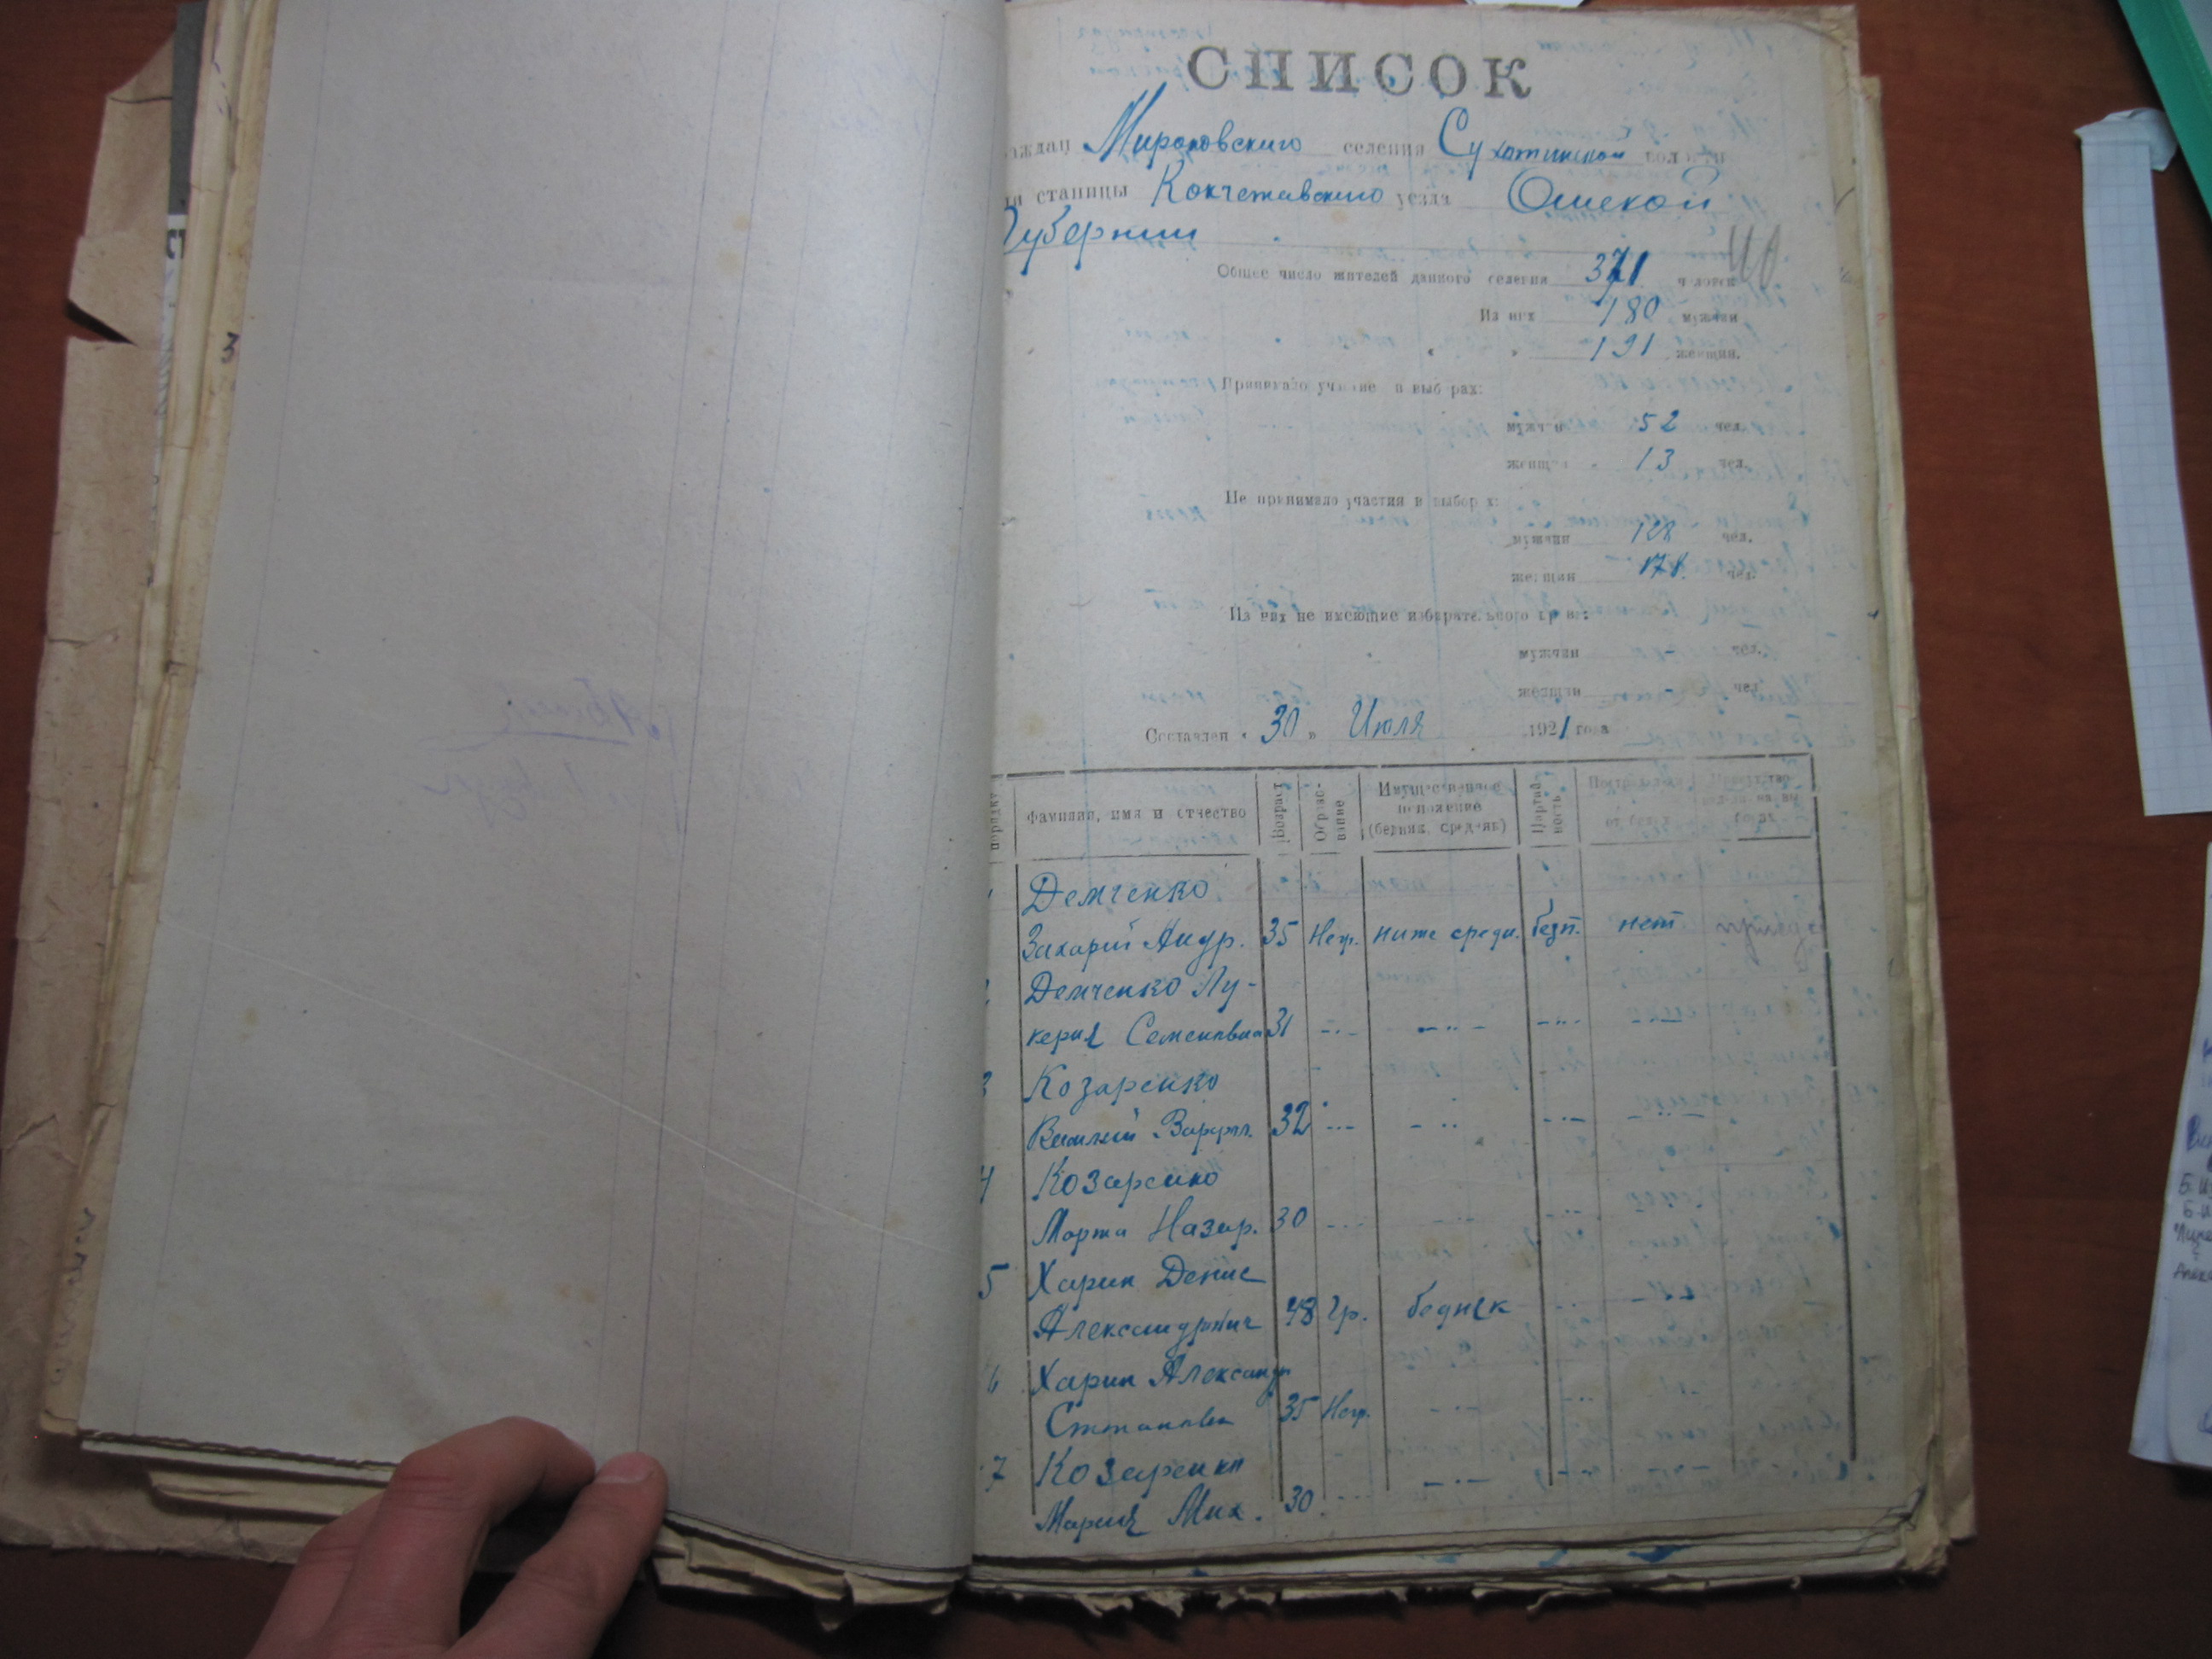 СПИСОК
аждан Мироновского селения Сухотинской волости
ли станицы Кокчетавского уезда Омской
Губернии
40
Общее число жителей данного селения 371 человек
Из них 180 мужчин
« » 191 женщин.
Принимало участие в выборах:
мужчин 52 чел.
женщин « 13 чел.
Не принимало участия в выборах:
мужчин 128 чел.
женщин 178 чел.
Из них не имеющие избирательного права:
мужчин чел.
женщин чел.
Составлен « 30 » Июля 1921 года
порядку Фамилия, имя и отчество Возраст Образование Имущественное положение (бедняк, средняк) Партийность
1 Демченко
Захарий Андр. 35 Негр. ниже средн. безп. нет
2 Демченко Лу-
керия Семеновна 31 -"- -"- -"- -"-
3 Козаренко
Василий Варфл. 32 -"- -"- -"- -"-
4 Козаренко
Марта Назар. 30 -"- -"- -"-
5 Харин Денис
Александрович 48 Гр. бедняк -"-
6 Харин Александр
35 Негр. -"- -"-
7 Козаренко
Мария Мих. 30 -"- -"- -"-